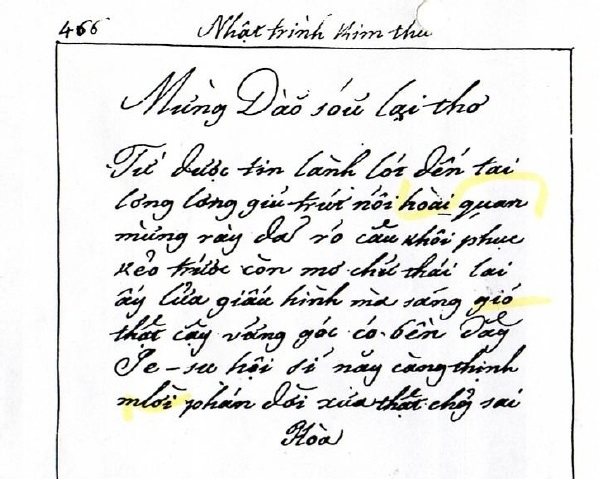 466 Nhật trình kim thu
Mừng Dào sóũ lại thơ
Từ dược tin lành lót đến tai
lơng lơng giủ trứt nỗi hoài quan
mừng rày đã rỏ cầu khôi phuc
kẻo trước còn mơ chử thái lai
ấy lửa giấu hình mà sáng gió
thật cây vửng gốc có bền dây
Je-su hội sỉ nãy càng thịnh
mlời phán dời xưa thật chẳg sai
Hòa